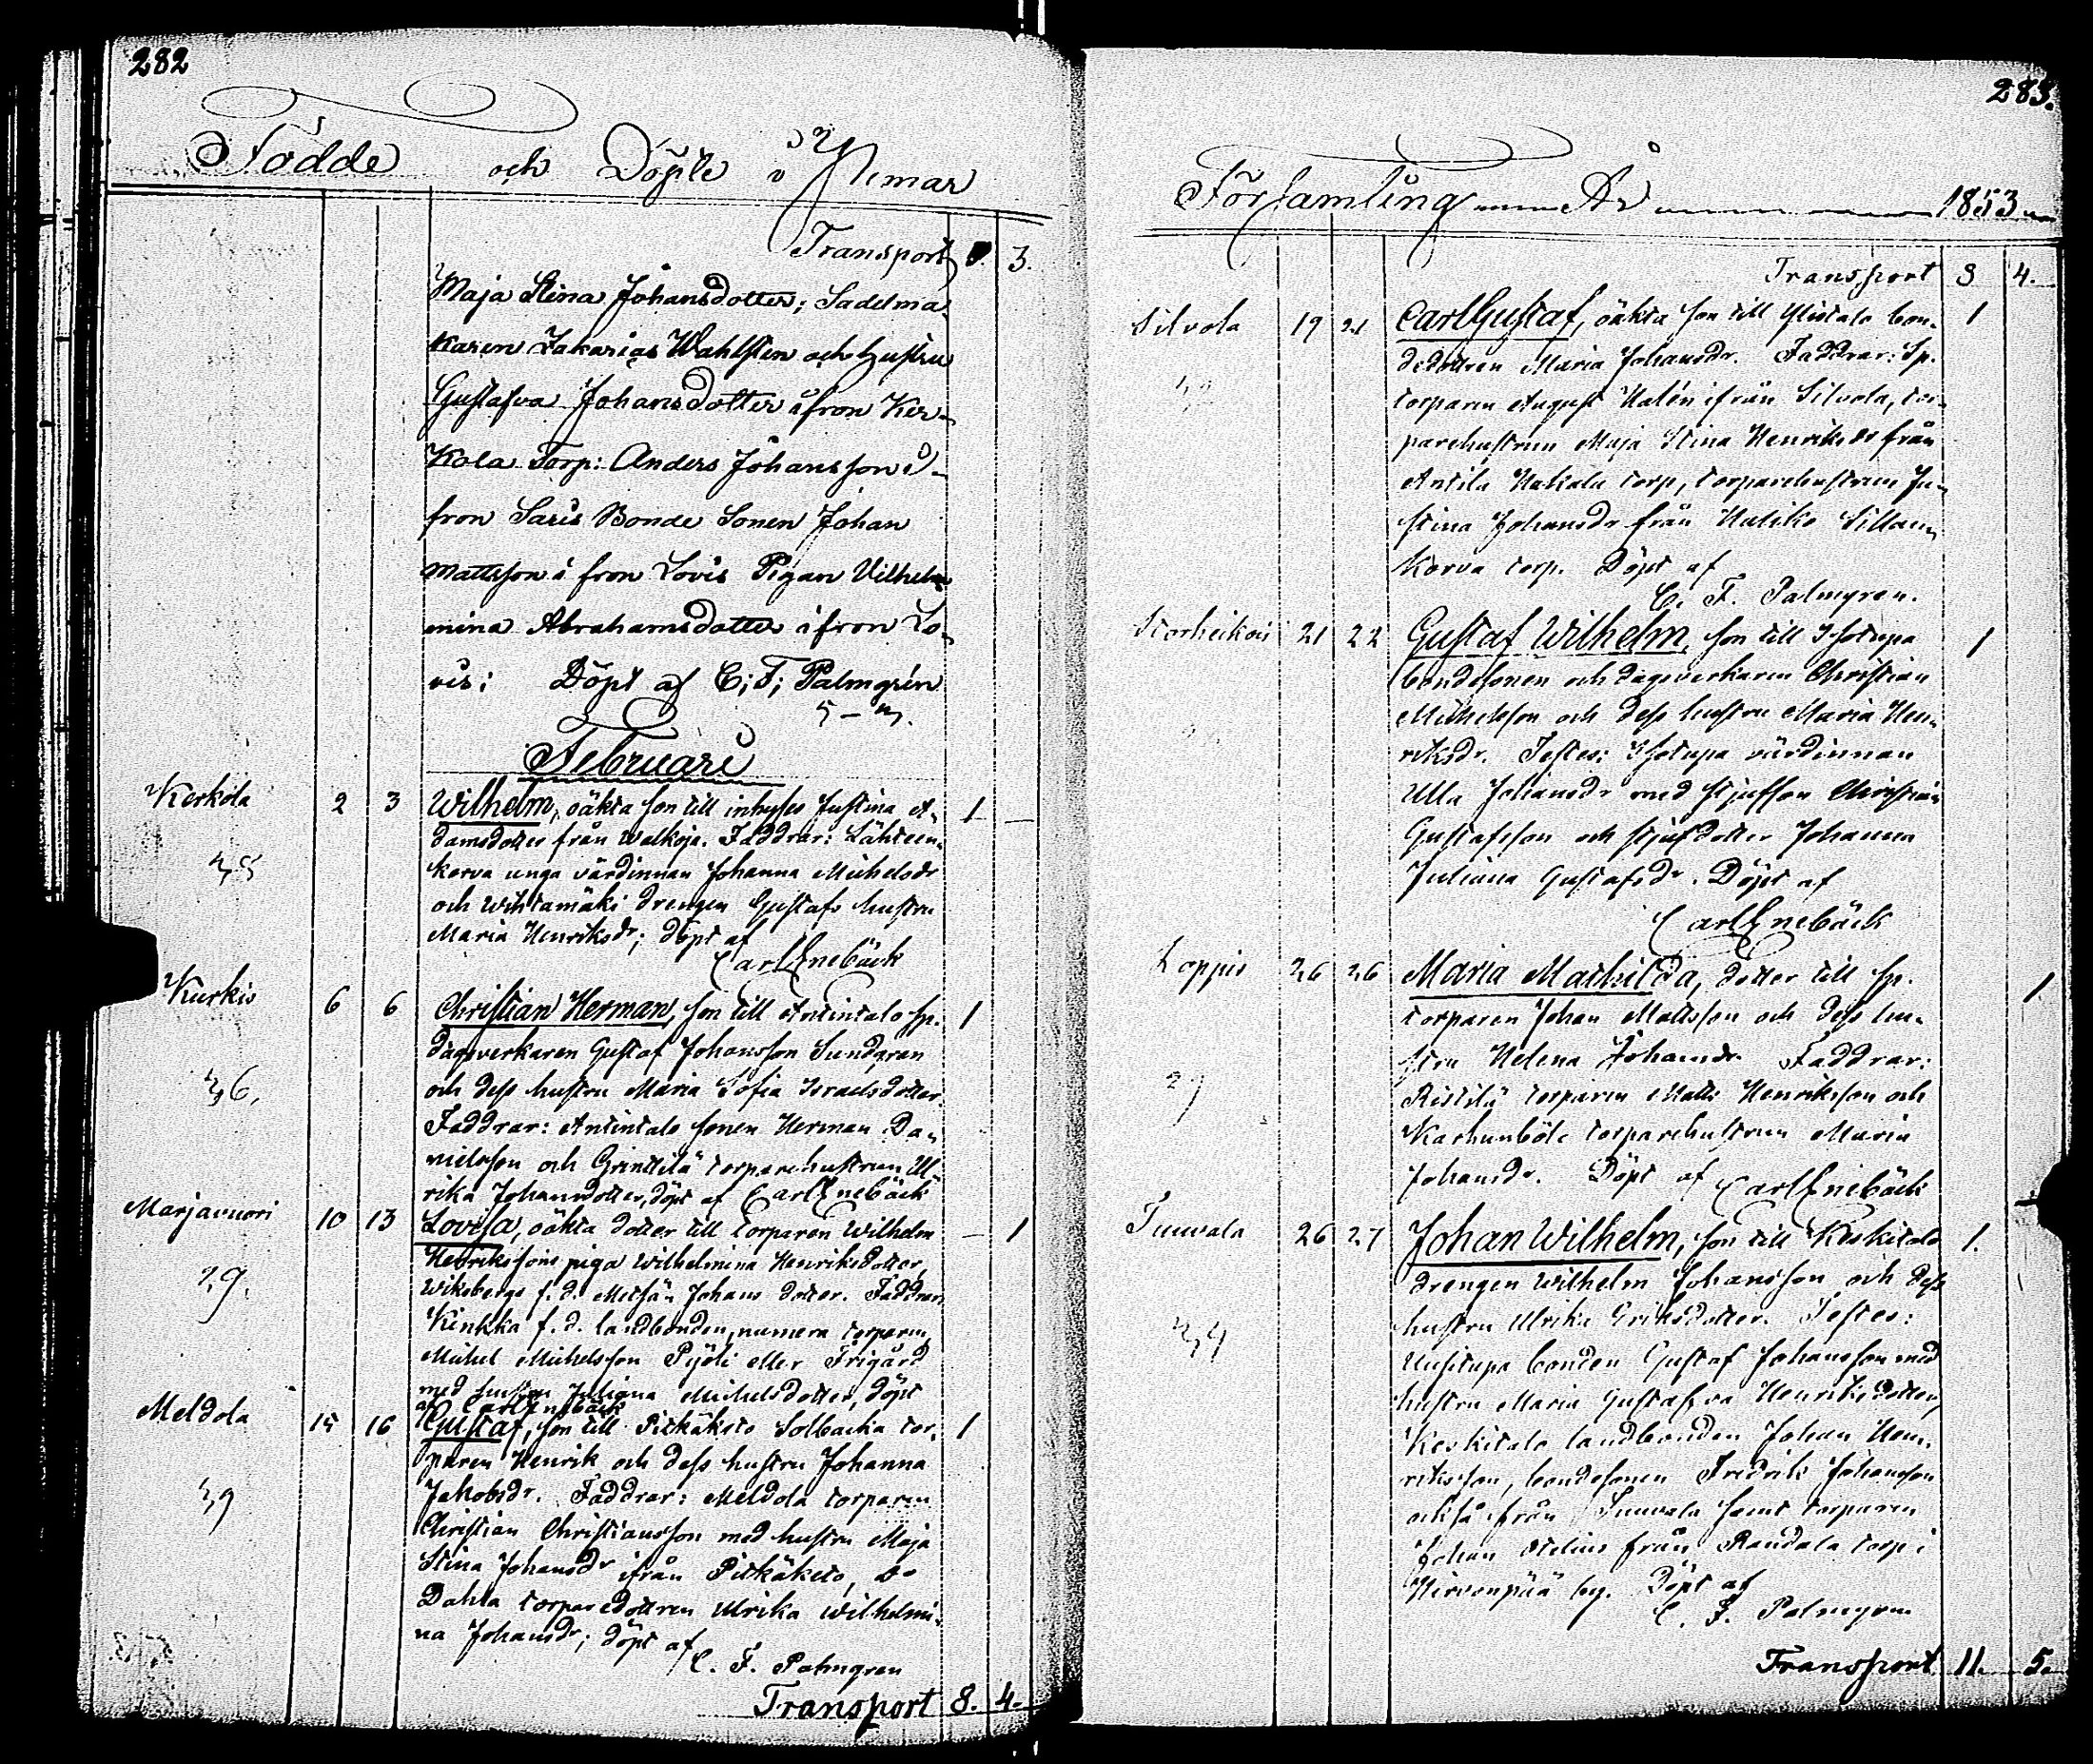 282
Födde och Döpte i Nemar
Transport 3.
Maja Stina Johansdotter; Sadelma-
karen Zakarias Wahlsten och hustru
Gustafva Johansdotter ifron Ker-
kola Torp: Anders Johansson i-
fron Saris Bonde Sonen Johan
Mattsson i fron Lovis Pigan Vilhel-
mina Abrahamsdotter ifron Lo-
vis; Döpt af C; F; Palmgrén
Februari
Kerkola 2 3 Wilhelm, oäkta son till inhyses Justina A-
damsdotter från Walkoja. Faddrar: Lähteen-
korva unga värdinnan Johanna Michelsdr
och Wihtamäki drengen Gustafs hustru
Maria Henriksdr; döpt af
Carl Enebäck
1
35
Kurkis 6 6 Christian Herman, son till Antintalo sp.
dagsverkaren Gustaf Johansson Sundgren
och dess hustru Maria Sofia Israelsdotter.
Faddrar: Antintalo sonen Herman Da-
nielsson och Grinttilä torparehustrun Ul-
rika Johansdotter, döpt af Carl Enebäck
1
36.
Marjavuori 10 13 Lovisa, oäkta dotter till torparen Wilhelm
Henrikssons piga Wilhelmina Henriksdotter,
Wiksbergs f. d. Johans dotter. Faddrar
Kinkka f. d. landbonden, numera torparen
Michel Michelsson Pyöli eller Frigård
med hustru Juliana Michelsdotter, döpt
af Carl Enebäck
1
29.
Meldola 15 16 Gustaf, son till Pitkäksto Solbacka tor-
paren Henrik och dess hustru Johanna
Jakobsdr. Faddrar: Meldola torparen
Christian Christiansson med hustru Maja
Stina Johansdr ifrån Pitkäketo,
Dahla torparedottren Ulrika Wilhelmi-
na Johansdr; döpt af
C. F. Palmgren
1
39
Transport 8. 4.
283.
Församling År 1853
Transport 8 4.
Silvola 19 21 Carl Gustaf, oäkta son till Ylistalo bon-
dedottren Maria Johansdr. Faddrar: Sp.
torparen August Halén ifrån Silvola, tor-
parehustrun Maja Stina Henriksdr från
Antila Hakala torp, torparehustrun Ju-
stina Johansdr från Haliko Sillan-
korva torp. Döpt af
C. F. Palmgren.
1
Storheikois 21 22 Gustaf Wilhelm, son till Isotupa
bondesonen och dagsverkaren Christian
Michelsson och dess hustru Maria Hen-
riksdr. Testes: Isotupa värdinnan
Ulla Johansdr med styfson Christian
Gustafsson och styfdotter Johanna
Juliana Gustafsdr. Döpt af
Carl Enebäck
1
Loppis 26 26 Maria Mathilda, dotter till sp.
torparen Johan Mattsson och dess hu-
stru Helena Johansdr. Faddrar:
Ristilä torparen Matts Henriksson och
Karhunböle torparehustrun Maria
Johansdr. Döpt af Carl Enebäck
1
Tuuvala 26 27 Johan Wilhelm, son till Keskitalo
drengen Wilhelm Johansson och dess
hustru Ulrika Eriksdotter. Testes:
Uusitupa bonden Gustaf Johansson med
hustru Maria Gustafva Henriksdotter,
Keskitalo landbonden Johan Hen-
riksson, bondesonen Fredrik Johansson
också från Tuuvala samt torparen
Johan från Randala torp i
Hirvonpää by. Döpt af
C. F. Palmgren
1.
34
Transport 11. 5.